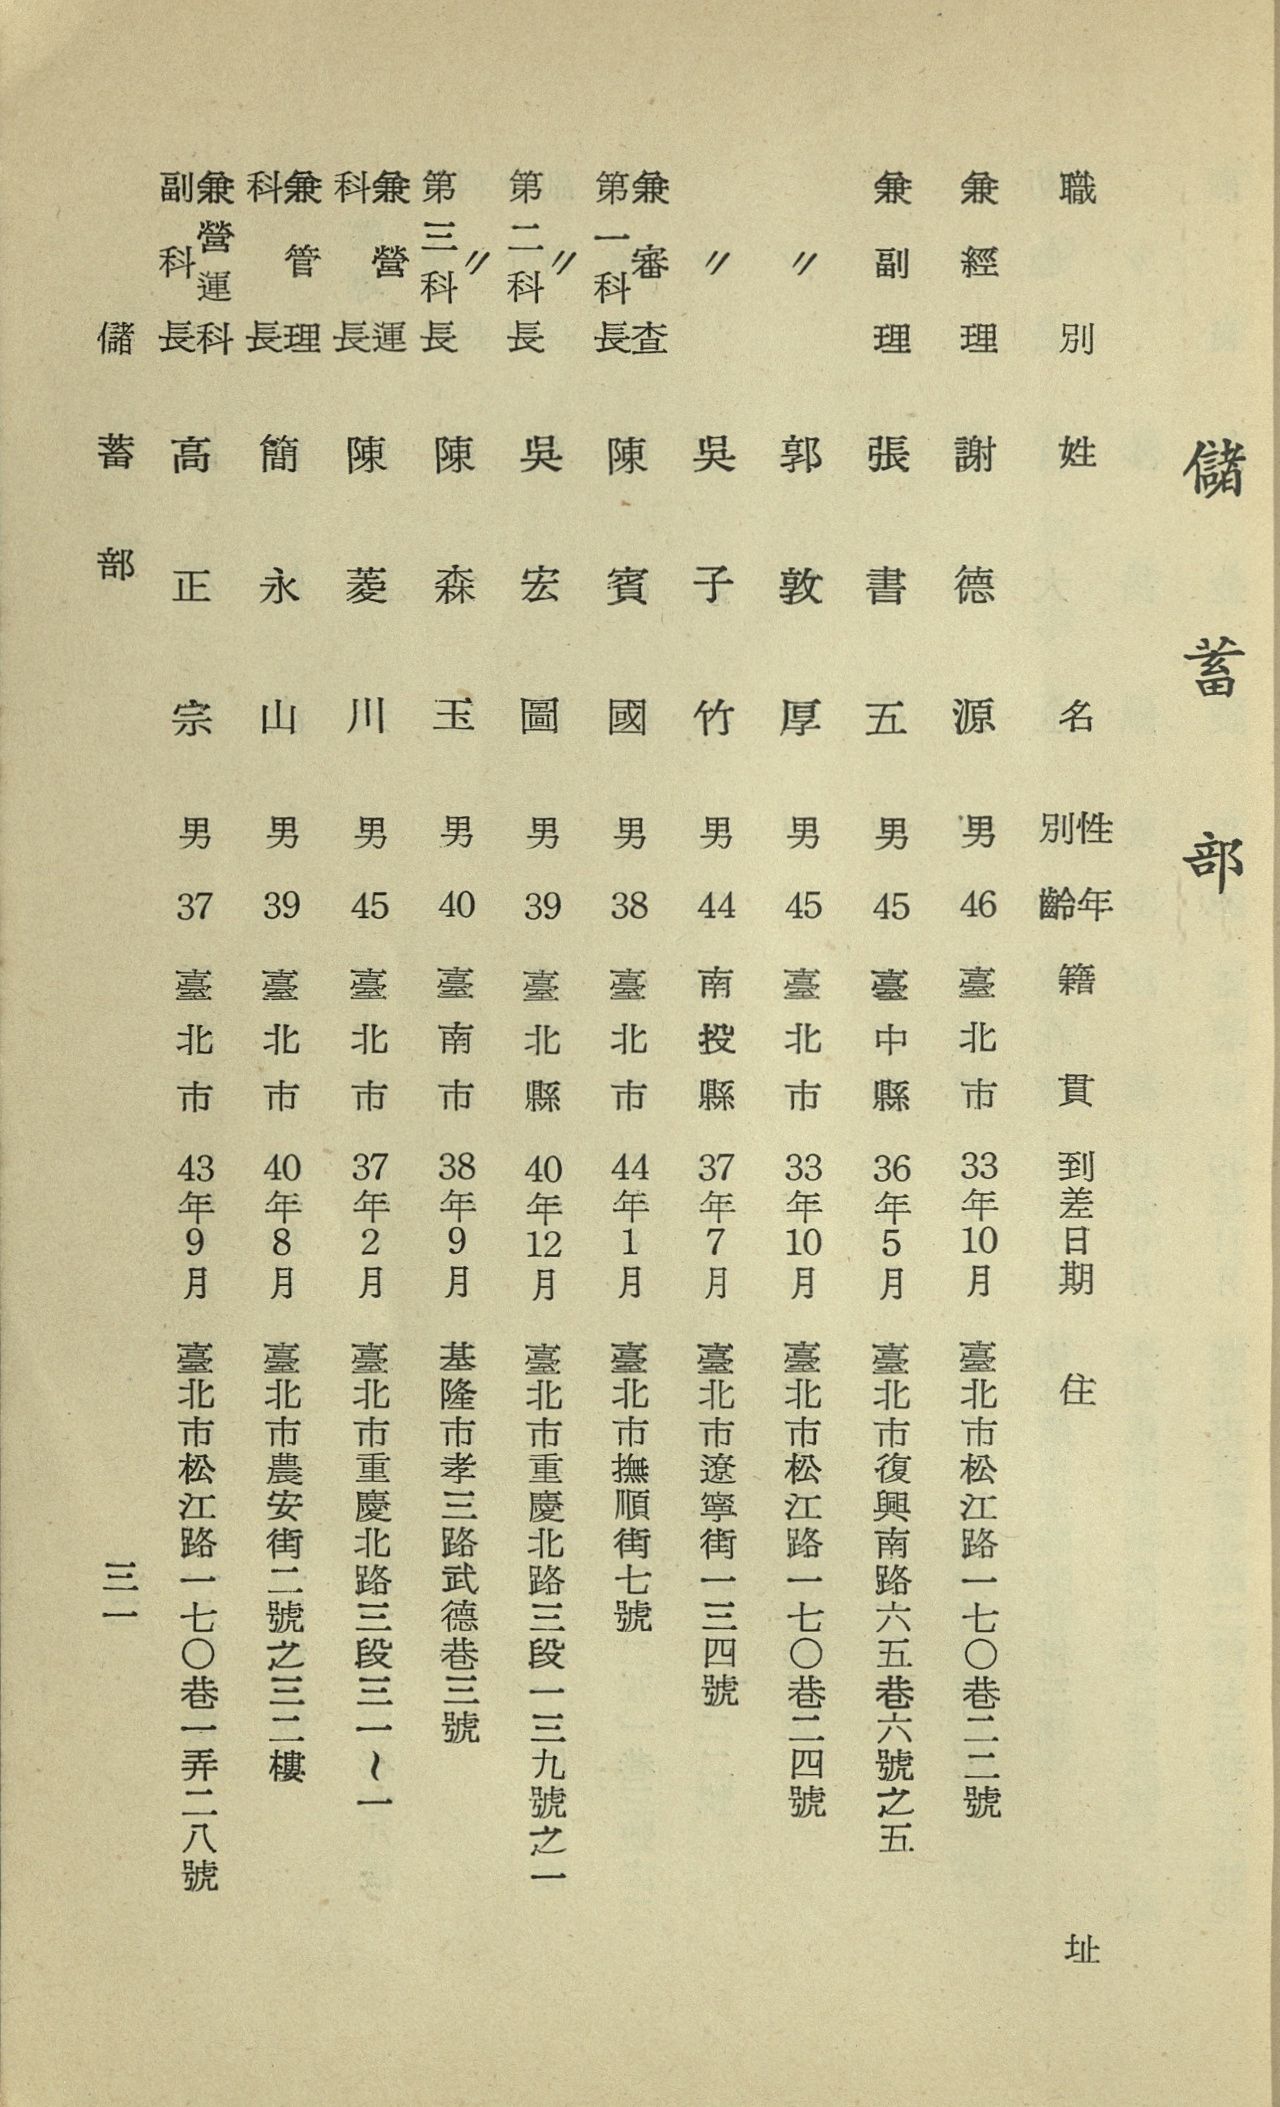 儲蓄部
職別 姓名 性別 年齡 籍貫 到差日期 住址
兼經理 謝德源 男 46 臺北市 33年10月 臺北市松江路一七〇巷二二號
兼副理 張書五 男 45 臺中縣 36年5月 臺北市復興南路六五巷六號之五
〃 郭敦厚 男 45 臺北市 33年10月 臺北市松江路一七〇巷二四號
〃 吳子竹 男 44 南投縣 37年7月 臺北市遼寧街一三四號
兼審查第一科長 陳賓國 男 38 臺北市 44年1月 臺北市撫順街七號
〃第二科長 吳宏圖 男 39 臺北縣 40年12月 臺北市重慶北路三段一三九號之一
〃第三科長 陳森玉 男 40 臺南市 38年9月 基隆市孝三路武德巷三號
兼營運科長 陳菱川 男 45 臺北市 37年2月 臺北市重慶北路三段三一~一
兼管理科長 簡永山 男 39 臺北市 40年8月 臺北市農安街二號之三二樓
兼營運科副科長 高正宗 男 37 臺北市 43年9月 臺北市松江路一七〇巷一弄二八號
儲蓄部 三一